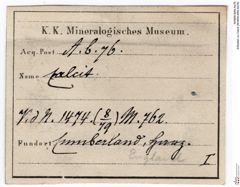 K. K. Mineralogisches Museum.
Acq. Post. A. b. 76.
Name Calcit.
V. d. N. 1474. (8/79) M. 762.
Fundort Cumberland,
England
I